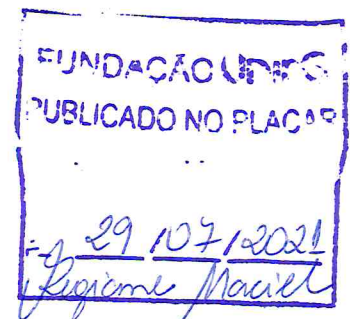 FUNDAÇÃO UNIRG
PUBLICADO NO PLACAR
29 / 07 / 2021
Regiane Maciel